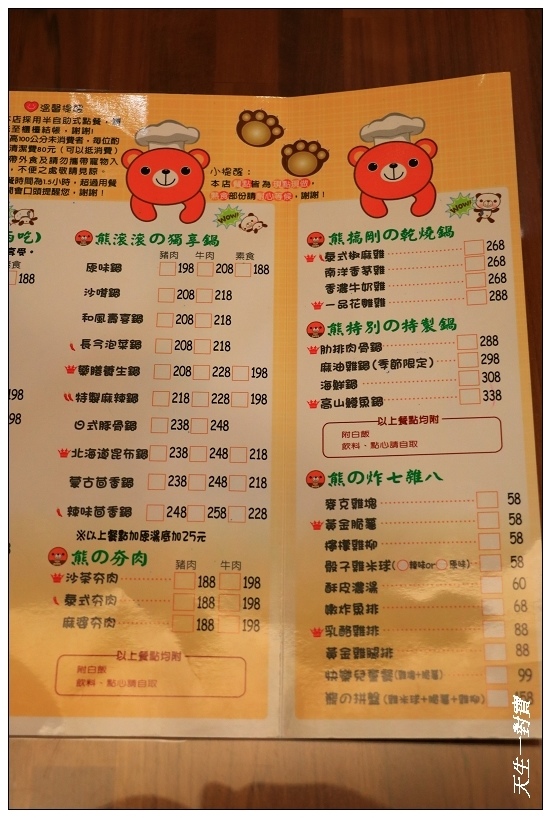 溫馨提醒
本店採用半自助式點餐，請
至櫃檯結帳，謝謝!
高100公分未消費者，每位酌
清潔費80元（可以抵消費）
帶外食及請勿攜帶寵物入
，不便之處敬請見諒。
餐時間為1.5小時，超過用餐
間會口頭提醒您，謝謝！
小提醒：
本店餐點皆為現點現做，
部份請耐心等候，謝謝！
NEW!
NEW!
188
198
98
熊滾滾の獨享鍋
豬肉 牛肉 素食
原味鍋 198 208 188
沙嗲鍋 208 218
和風壽喜鍋 208 218
長今泡菜鍋 208 218
藥膳養生鍋 208 228 198
特製麻辣鍋 218 228 198
日式豚骨鍋 238 248
北海道昆布鍋 238 248 218
蒙古茴香鍋 238 248 218
辣味茴香鍋 248 258 228
※以上餐點加原湯底加25元
熊の夯肉
豬肉 牛肉
沙茶夯肉 188 198
泰式夯肉 188 198
麻婆夯肉 188 198
以上餐點均附
附白飯
飲料、點心請自取
熊搞剛の乾燒鍋
泰式椒麻雞 268
南洋香茅雞 268
香濃牛奶雞 268
一品花雕雞 288
熊特別の特製鍋
肋排肉骨鍋 288
麻油雞鍋(季節限定) 298
海鮮鍋 308
高山鱘魚鍋 338
以上餐點均附
附白飯
飲料、點心請自取
熊の炸七雜八
麥克雞塊 58
黃金脆薯 58
檸檬雞柳 58
骰子雞米球(辣味or原味) 58
酥皮濃湯 60
嫩炸魚排 68
乳酪雞排 88
黃金雞腿排 88
快樂兒童餐(雞塊+脆薯) 99
熊の拼盤(雞米球+脆薯+雞柳) 158
天生一對寶